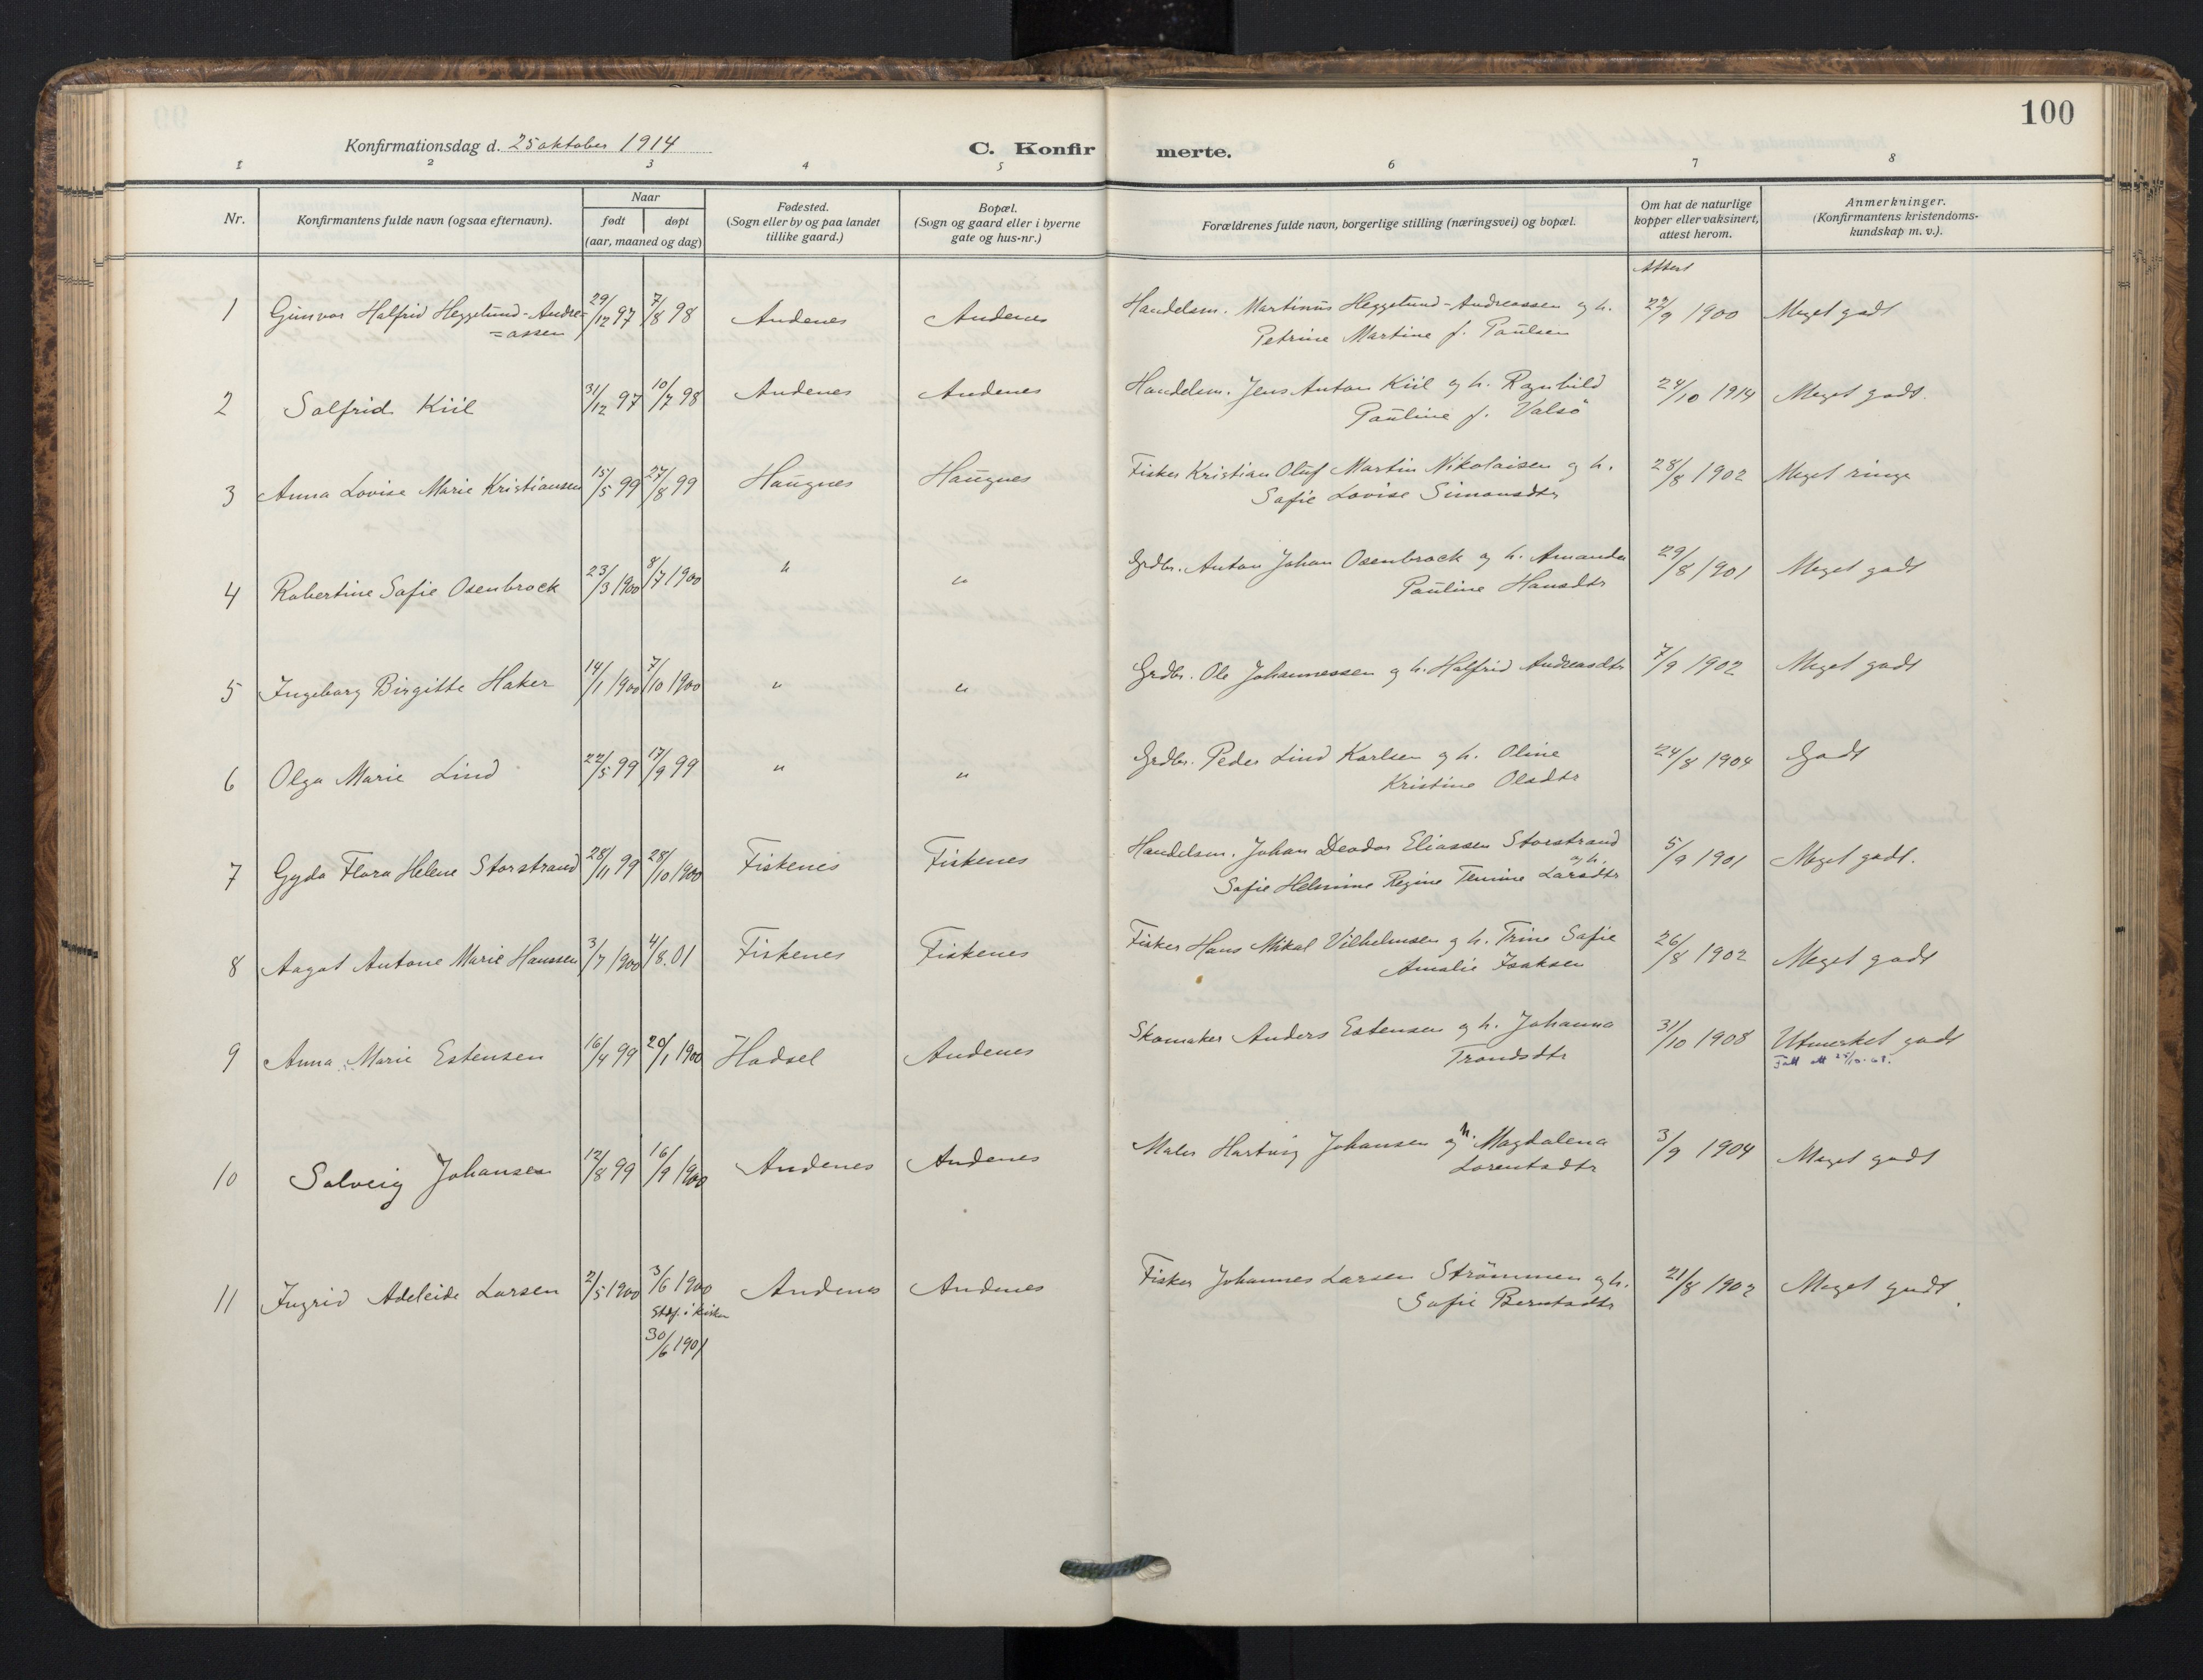 100
Konfirmationsdag d. 25 oktober 1914
C. Konfirmerte.
1 2 3 4 5 6 7 8
Nr.
Konfirmantens fulde navn (ogsaa efternavn).
Naar
født døpt
(aar, maaned og dag)
Fødested.
(Sogn eller by og paa landet
tillike gaard.)
Bopæl.
(Sogn og gaard eller i byerne
gate og hus-nr.)
Forældrenes fulde navn, borgerlige stilling (næringsvei) og bopæl.
Om hat de naturlige
kopper eller vaksinert,
attest herom.
Anmerkninger.
(Konfirmantens kristendoms-
kundskap m. v.).
Attest
1 Gunvor Halfrid Heggelund-Andre= 29/12 97 7/8 98 Andenes Andenes Handelsm. Martinus Heggelund-Andreassen og h. 27/9 1900 Meget godt
=assen Petrine Martine f. Paulsen
2 Solfrid Kiil 31/12 97 10/7 98 Andenes Andenes Handelsm. Jens Anton Kiil og h. Ragnhild 24/10 1914 Meget godt.
Pauline f. Valsö
3 Anna Lovise Marie Kristiansen 15/5 99 27/8 99 Haugnes Haugnes Fisker Kristian Oluf Martin Nikolaisen og h. 28/8 1902 Meget ringe
Safie Lovise Simonsdtr
4 Robertine Safie Osenbrock 23/3 1900 8/7 1900 " " Grdbr. Anton Johan Osenbrock og h. Amanda 29/8 1901 Meget godt
Pauline Hansdtr
5 Ingeborg Birgitte Haker 14/1 1900 7/10 1900 " " Grdbr. Ole Johannessen og h. Halfrid Andreasdtr 7/9 1902 Meget godt
6 Olga Marie Lind 22/5 99 17/9 99 " " Grdbr. Peder Lind Karlsen og h. Oline 24/8 1904 Godt
Kristine Olsdtr
7 Gyda Flora Helene Storstrand 28/11 99 28/10 1900 Fiskenes Fiskenes Handelsm. Johan Deodor Eliassen Storstrand 5/9 1901 Meget godt.
og h.
Safie Helmine Regine Larsdtr
8 Aagot Antone Marie Hanssen 3/7 1900 4/8. 01 Fiskenes Fiskenes Fisker Hans Mikal Vilhelmsen og h. Trine Safie 26/8 1902 Meget godt
Amalie Isaksen
9 Anna Marie Estensen 16/4 99 20/1 1900 Hadsel Andenes Skomaker Anders Estensen og h. Johanna 31/10 1908 Utmerket godt
Trondsdtr Fatt att 25/10-68.
10 Solveig Johansen 12/8 99 16/9 1900 Andenes Andenes Maler Hartvig Johansen og h. Magdalena 3/9 1904 Meget godt
Lorentsdtr
11 Ingrid Adeleide Larsen 2/5 1900 3/6 1900 Andenes Andenes Fisker Johannes Larsen Strömmen og h. 21/8 1902 Meget godt.
Stadf. i kirken Safie Berntsdtr
30/6 1901